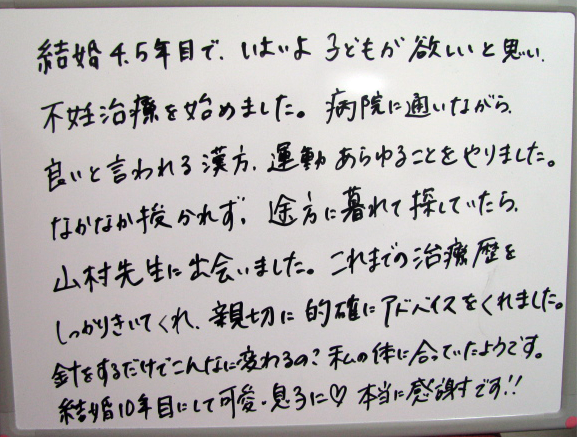 結婚4.5年目で、いよいよ子どもが欲しいと思い、
不妊治療を始めました。病院に通いながら、
良いと言われる漢方、運動あらゆることをやりました。
なかなか授かれず、途方に暮れて探していたら、
山村先生に出会いました。これまでの治療歴を
しっかりきいてくれ、親切に的確にアドバイスをくれました。
針をするだけでこんなに変わるの?私の体に合っていたようです。
結婚10年目にして可愛い息子に♡本当に感謝です!!